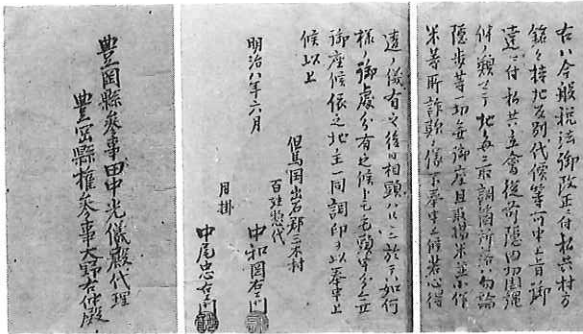 右ハ今般税法御改正ニ付私共村方
銘々持地反別代價等可申上旨御
達ニ付私共立會従前隠田切開縄
伸ノ類ニ至地毎ニ取調箇所詰ハ勿論
隠歩等一切無御座且取揚米並小作
米等所詐欺ノ儀丁奉申上候若心得
違ノ儀有之後日相顕ハルニ於テハ如何
様ノ御處分有之候トモ毛頭申分無
御座候依之地主一同調印ヲ以奉申上
候以上
明治八年六月
但馬国出石郡三木村
百姓惣代
中和田右ヱ門
月掛
中尾忠右ヱ門
豊岡縣参事田中光儀殿代理
豊岡縣権参事大野右仲殿